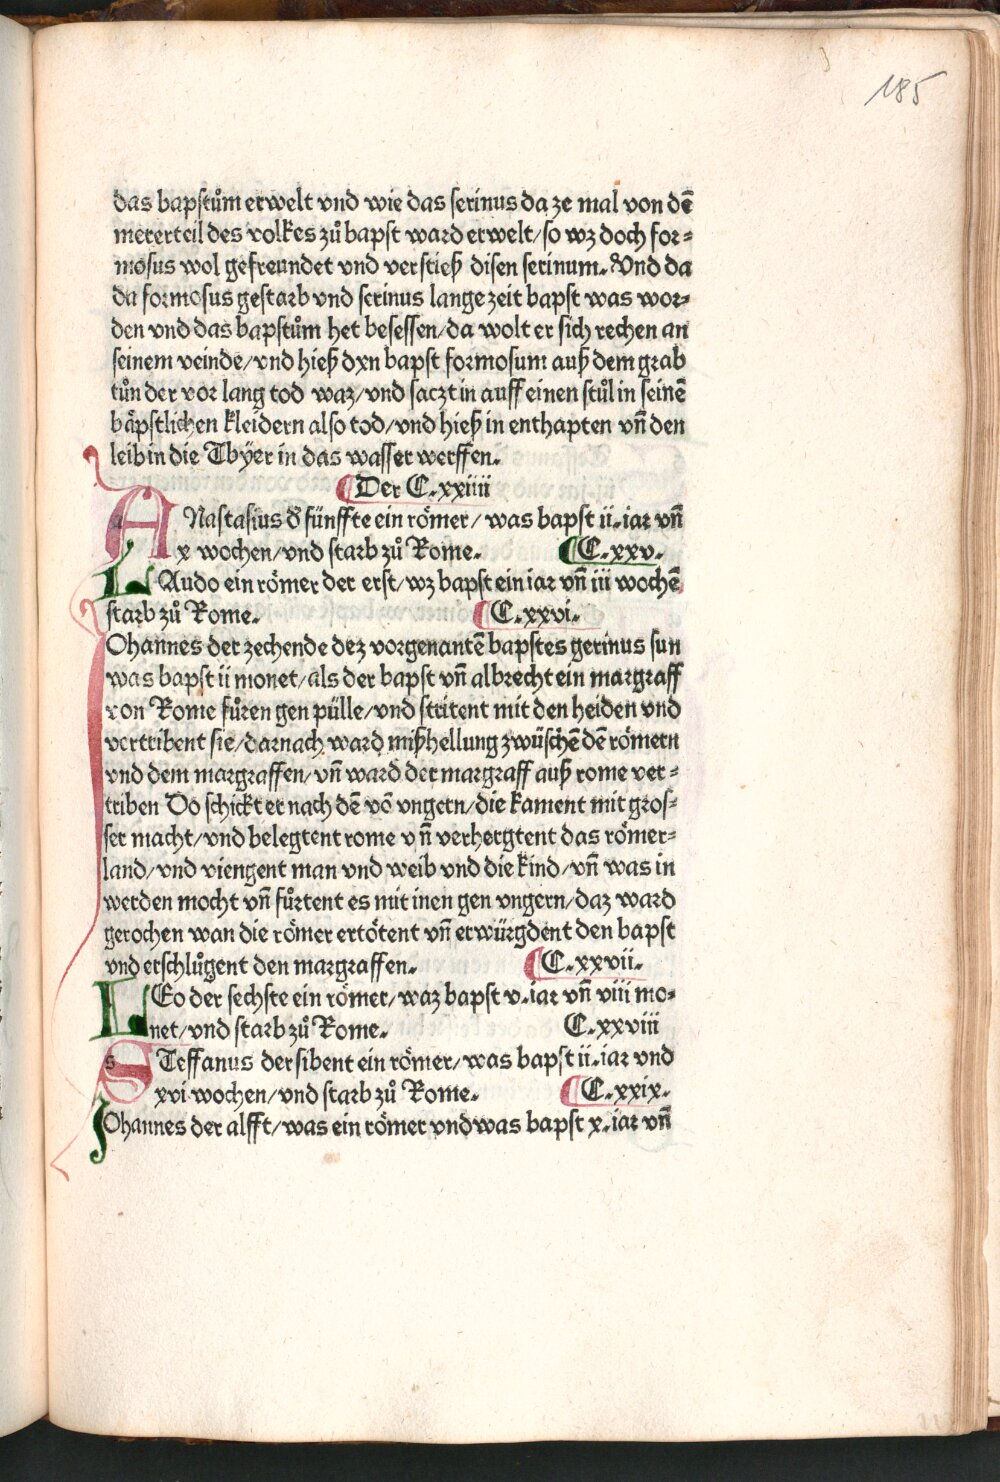 185
das bapstům erwelt vnd wie das serinus da ze mal von dē
mererteil des volkes zů bapst ward erwelt/so wz doch for⸗
mosus wol gefreundet vnd verstieß disen serinum. Vnd da
da formosus gestarb vnd serinus lange zeit bapst was wor⸗
den vnd das bapstům het besessen/da wolt er sich rechen an
seinem veinde/vnd hieß dxn bapst formosum auß dem grab
tůn der vor lang tod waz/vnd saczt in auff einen stůl in seinē
bäpstlichen kleidern also tod/vnd hieß in enthapten vn̄ den
leib in die Tbÿer in das wasser werffen.
Der C.xxiiii
ANastasius d̕ fünffte ein römer/ was bapst ii.iar vn̄
x wochen/vnd starb zů Rome. C.xxv.
LAudo ein römer der erst/wz bapst ein iar vn̄ iii wochē
starb zů Rome. C.xxvi.
IOhannes der zechende dez vorgenantē bapstes gerinus sun
was bapst ii monet/als der bapst vn̄ albrecht ein margraff
von Rome fůren gen pülle/vnd stritent mit den heiden vnd
vertribent sie/darnach ward mißhellung zwüschē dē römern
vnd dem margraffen/vn̄ ward der margraff auß rome ver⸗
triben Do schickt er nach dē vō vngern/die kament mit gros⸗
ser macht/vnd belegtent rome vn̄ verhergtent das römer⸗
land/vnd viengent man vnd weib vnd die kind/vn̄ was in
werden mocht vn̄ fůrtent es mit inen gen vngern/daz ward
gerochen wan die römer ertötent vn̄ erwürgdent den bapst
vnd erschlůgent den margraffen. C.xxvii.
LEo der sechste ein römer/waz bapst v.iar vn̄ viii mo⸗
net/vnd starb zů Rome. C.xxviii
STeffanus der sibent ein römer/was bapst ii.iar vnd
xvi wochen/vnd starb zů Rome. C.xxix.
IOhannes der alfft/was ein römer vnd was bapst x.iar vn̄